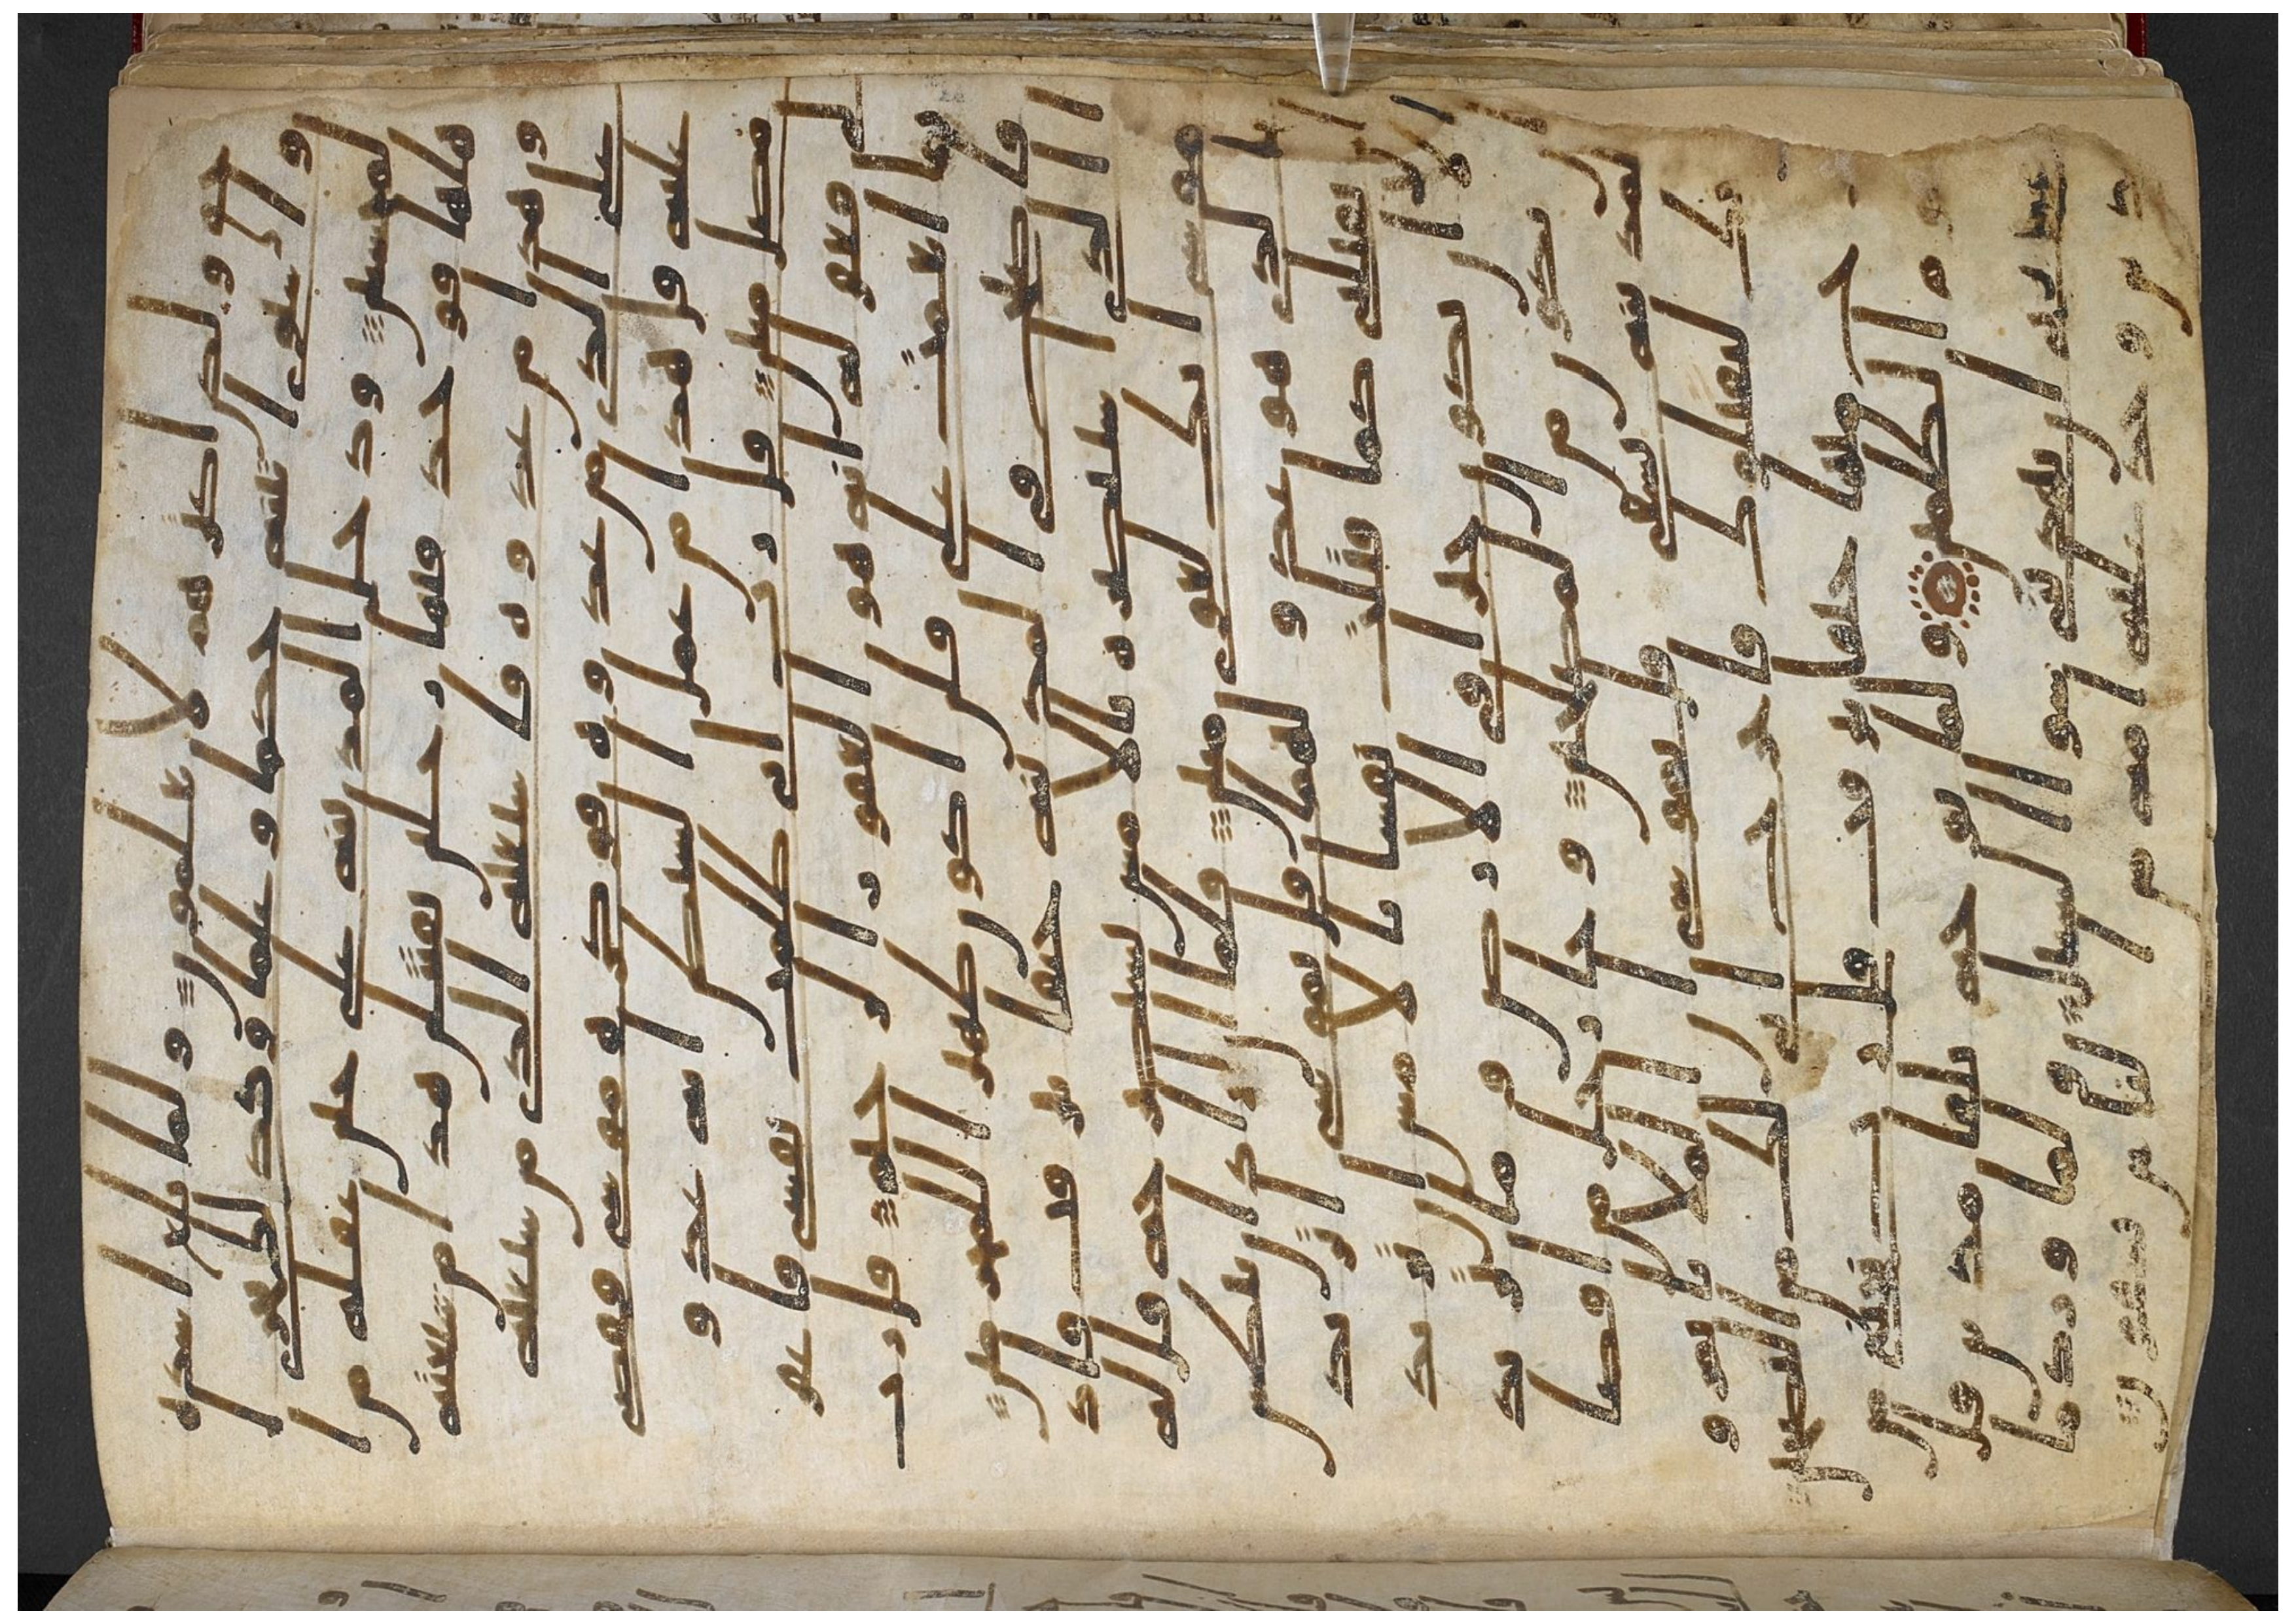 حق ولكن اكثرهم لا يعلمون ولما بلغ اشده
واستوى اتينه حكما وعلما وكذلك نجزي ا
لمحسنين ودخل المدينه على حين غفله من ا
هلها فوجد فيها رجلين يقتتلن هذا من شيعته
وهذا من عدوه فاستغثه الذي من شيعته
على الذي من عدوه فوكزه موسى فقضى
عليه قال هذا من عمل الشيطن انه عدو
مضل مبين قال رب اني ظلمت نفسي فاغفر
لي فغفر له انه هو الغفور الرحيم قال رب
بما انعمت علي فلن اكون ظهيرا للمجرمين
فاصبح في المدينه خيفا يترقب فاذا
الذي استنصره بالامس يستصرخه قال له
موسى انك لغوي مبين فلما ان اراد ان يبطش
بالذي هو عدو لهما قال يموسى اتريد
ان تقتلني كما قتلت نفسا بالامس ان تريد
الا ان تكون جبارا في الارض وما تريد
ان تكون من المصلحين وجا رجل من اقصا
المدينه يسعى قال يموسى ان الملا ياتمرون
بك ليقتلوك فاخرج اني لك من النصحين
فخرج منها خيفا يترقب قال رب نجني
من القوم الظلمين ولما توجه تلقا مدين قال
عسى ربي ان يهديني سوا السبيل ولما ورد ما
مدين وجد عليه امه من الناس يسقون